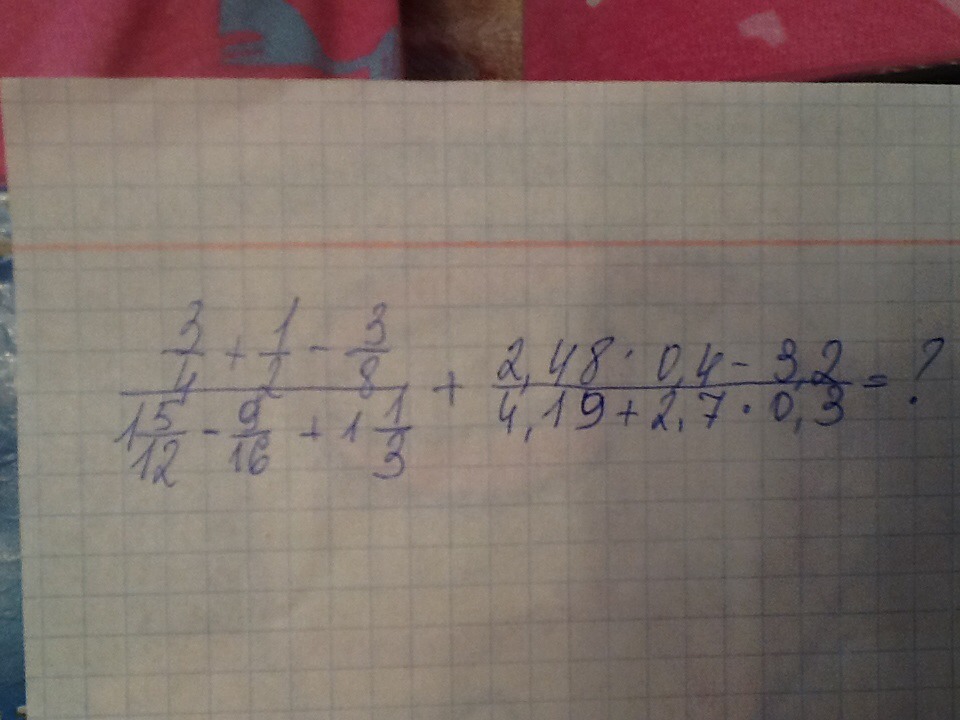 3/4 + 1/2 - 3/8
1 5/12 - 9/16 + 1 1/3
+
2,48 · 0,4 - 3,2
4,19 + 2,7 · 0,3
= ?